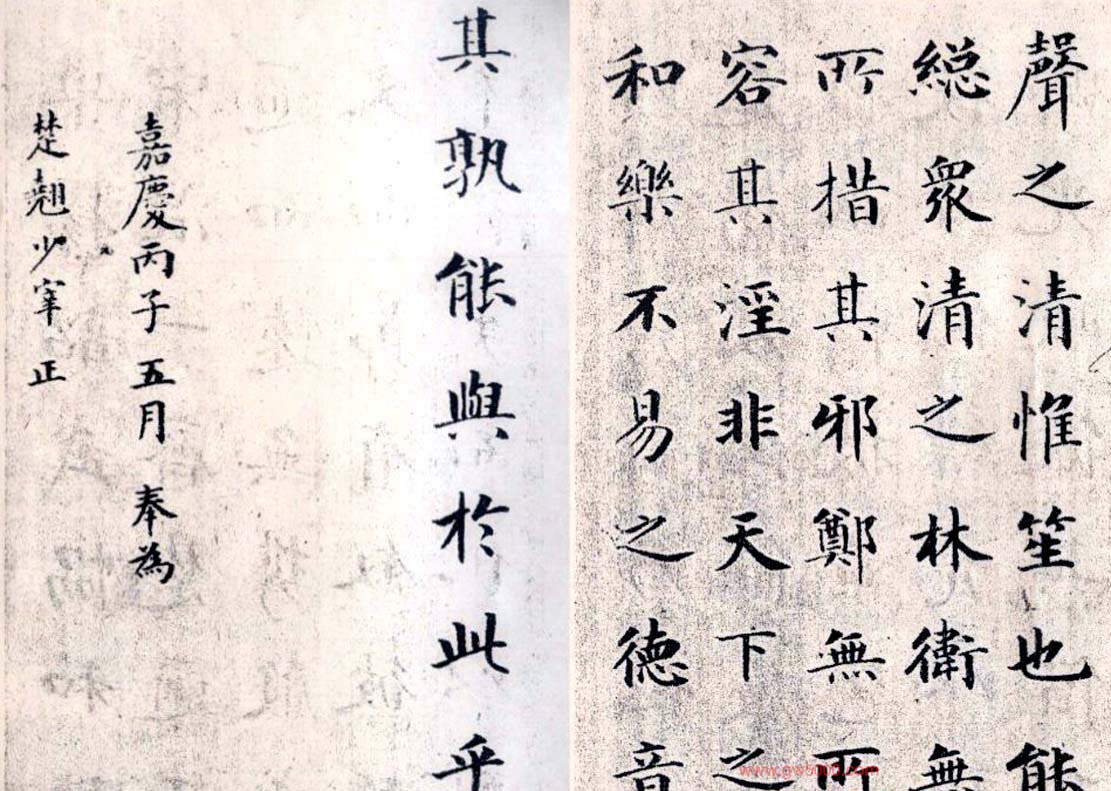 聲之清惟笙也能
総衆清之林衛無
所措其邪鄭無所
容其淫非天下之
和樂不易之德音
其孰能與於此乎
嘉慶丙子五月奉為
楚翹少宰正
www.gw5000.com